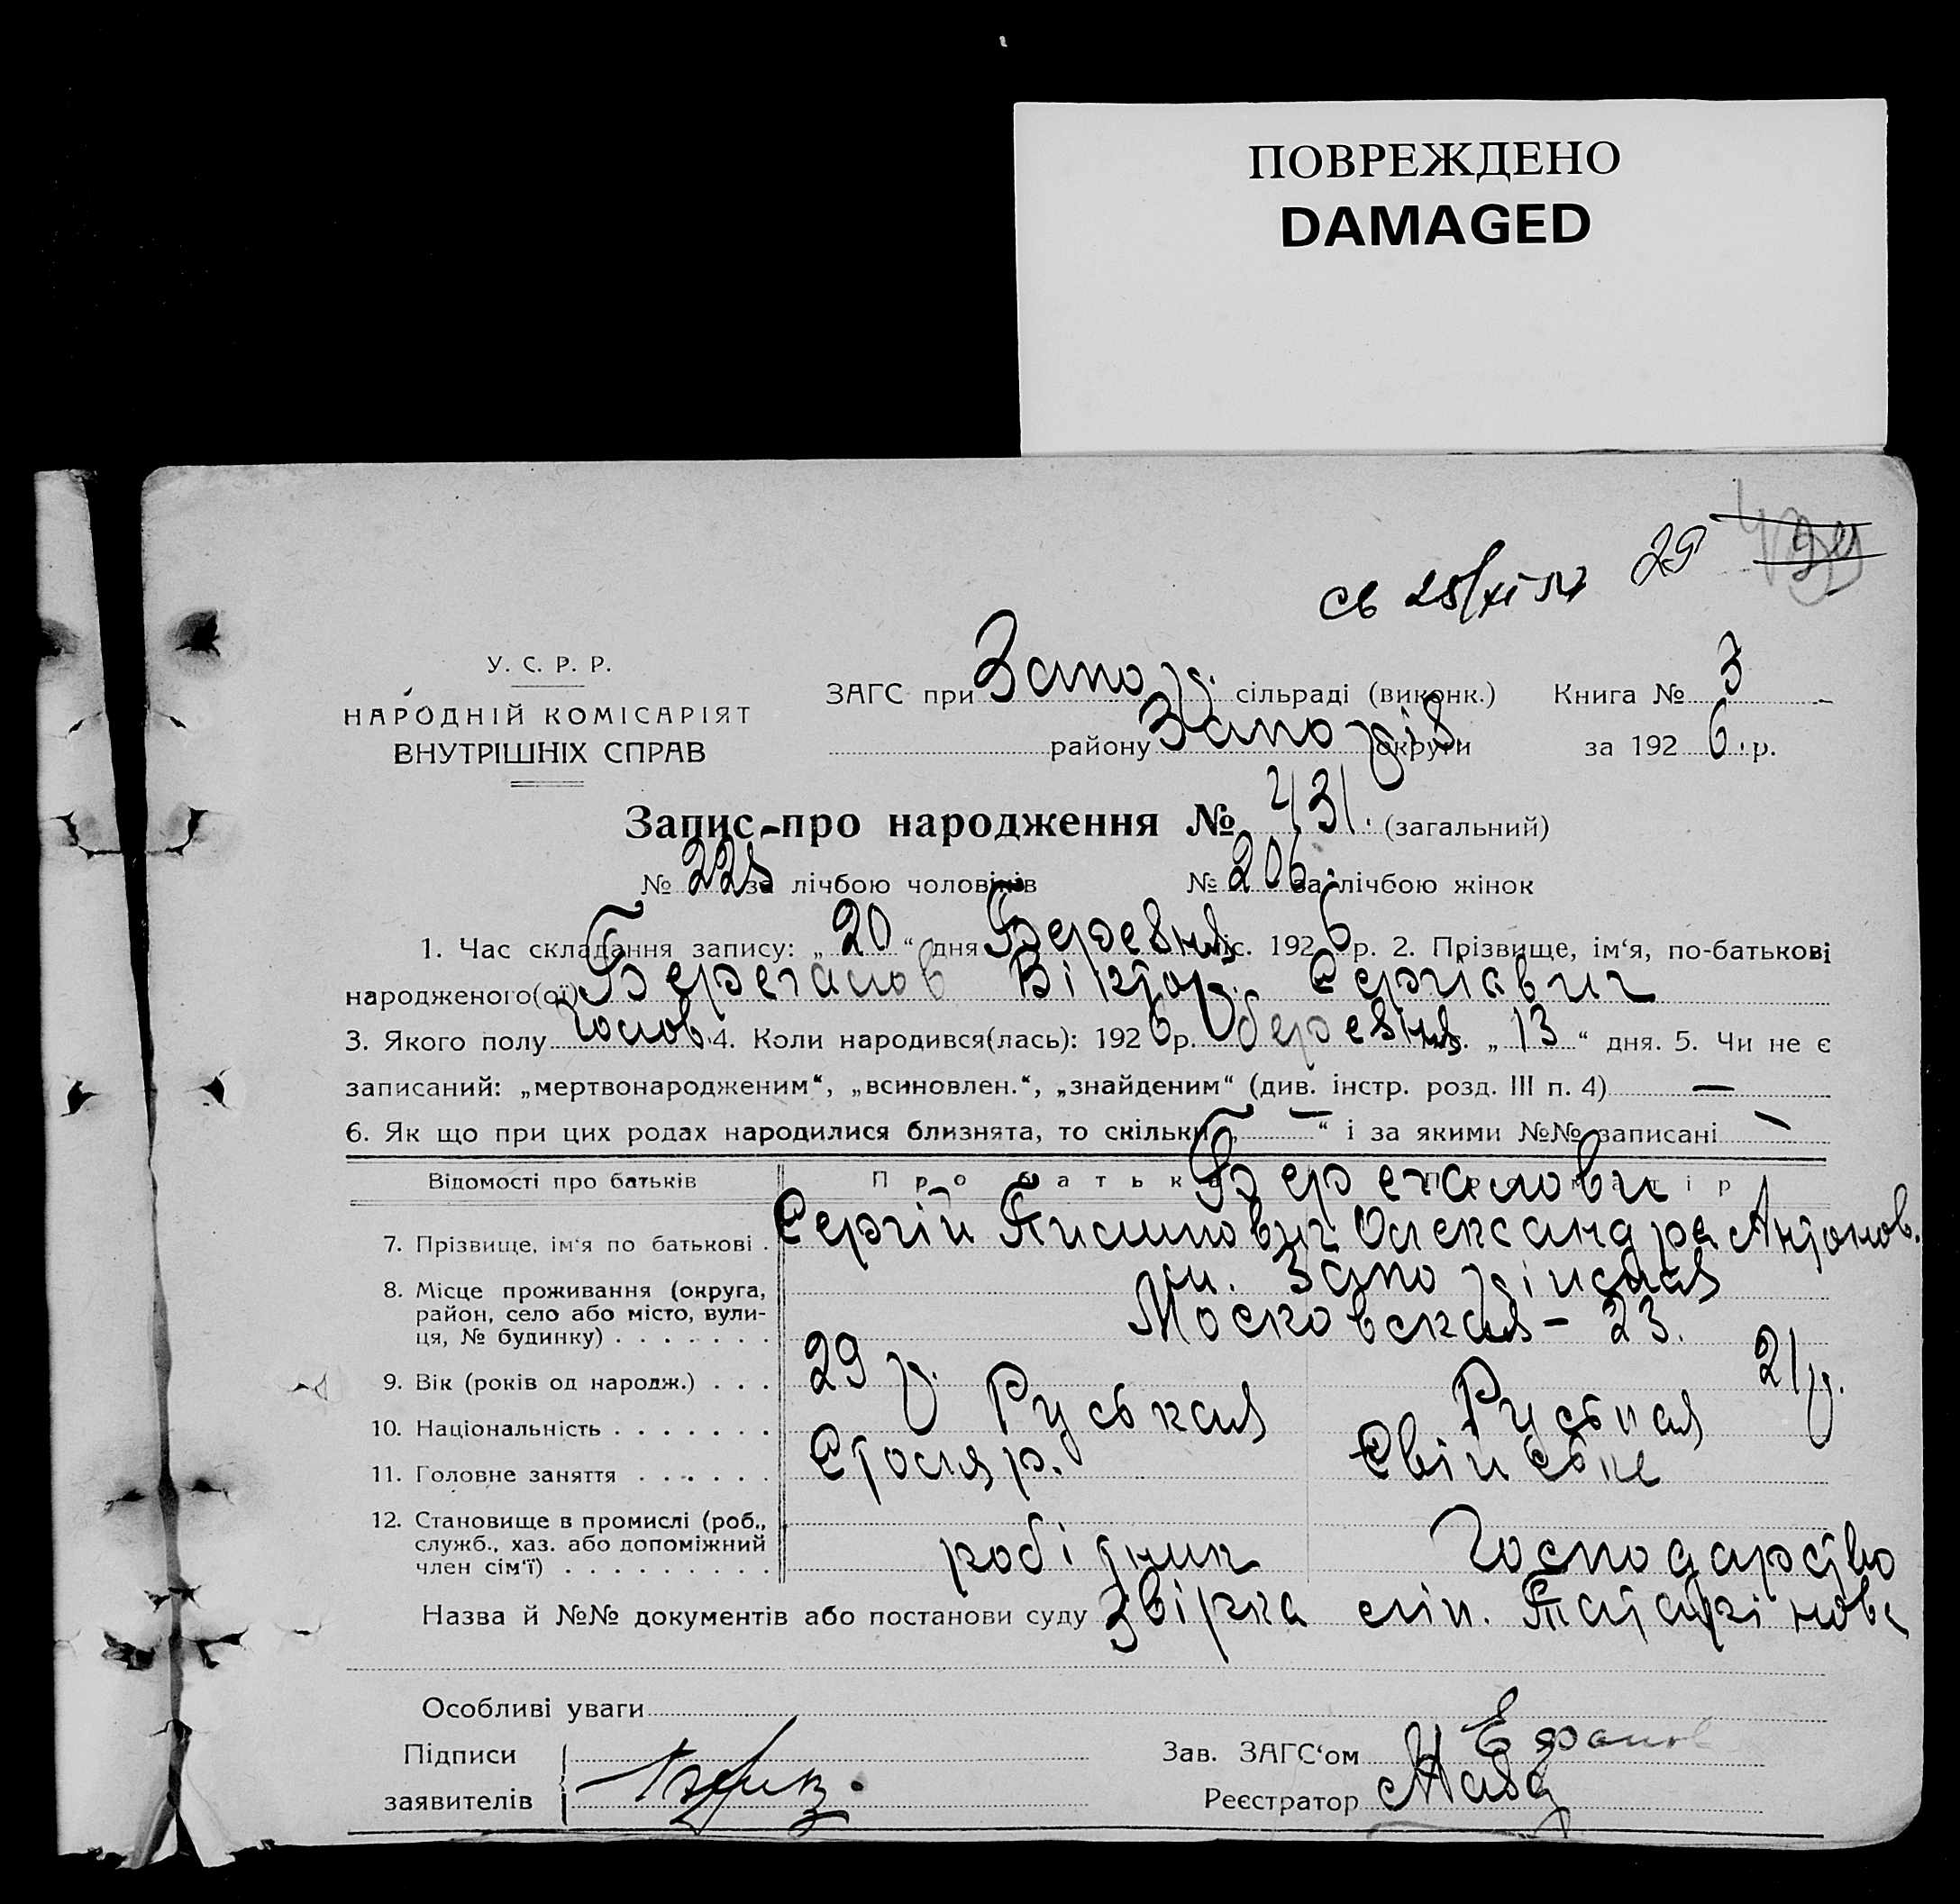 ПОВРЕЖДЕНО
DAMAGED
св 25/XI-54 29
У. С. Р. Р.
НАРОДНІЙ КОМІСАРІЯТ
ВНУТРІШНІХ СПРАВ
ЗАГС при Запор. сільраді (виконк.) Книга № 3
району Запоріз округи за 1926.р.
Запис про народження № 431. (загальний)
№ 225 за лічбою чоловіків № 206 за лічбою жінок
1. Час складання запису: „20“ дня Березня міс. 1926 р. 2. Прізвище, ім'я, по-батькові
народженого(ої) Берегалов Віктор Сергієвич
3. Якого полу Чолов. 4. Коли народився(лась): 1926 р. березня „13“ дня. 5. Чи не є
записаний: „мертвонародженим“, „всиновлен.“, „знайденим“ (див. інстр. розд. III п. 4) —
6. Як що при цих родах народилися близнята, то скільки „—“ і за якими №№ записані —
Відомості про батьків Про батька Про матір
Берегалови
7. Прізвище, ім'я по батькові . Сергій Пилипович Олександра Антонов.
8. Місце проживання (округа, район, село або місто, вулиця, № будинку) . . . . . . . м. Запоріжжя
Московская - 23.
9. Вік (років од народж.) . . . 29 р. 21 р.
10. Національність . . . . . . . Руськая Руськая
11. Головне заняття . . . . . . Столяр. Свійське
12. Становище в промислі (роб., служб., хаз. або допоміжний член сім'ї) . . . . . . . . . робітник Господарство
Назва й №№ документів або постанови суду Звірка
Особливі уваги
Підписи Зав. ЗАГС'ом
заявителів Реєстратор